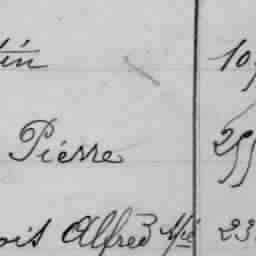 tin 10
Pierre 255
ois Alfred 23